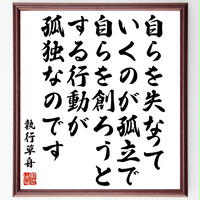 自らを失なって
いくのが孤立で
自らを創ろうと
する行動が
孤独なのです
執行草舟